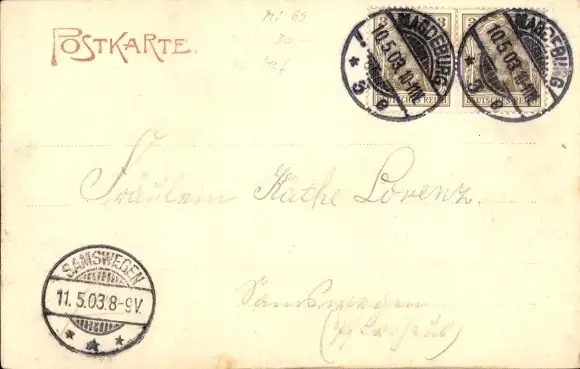 Mi 69
30.-
POSTKARTE.
3 3
MAGDEBURG
10.5.03.10-11N.
* 3 e
MAGDEBURG
10.5.03.10-11N.
* 3 e
DEUTSCHES REICH DEUTSCHES REICH
Fräulein Käthe Lorenz.
SAMSWEGEN
11.5.03.8-9V.
* * *
Samswegen